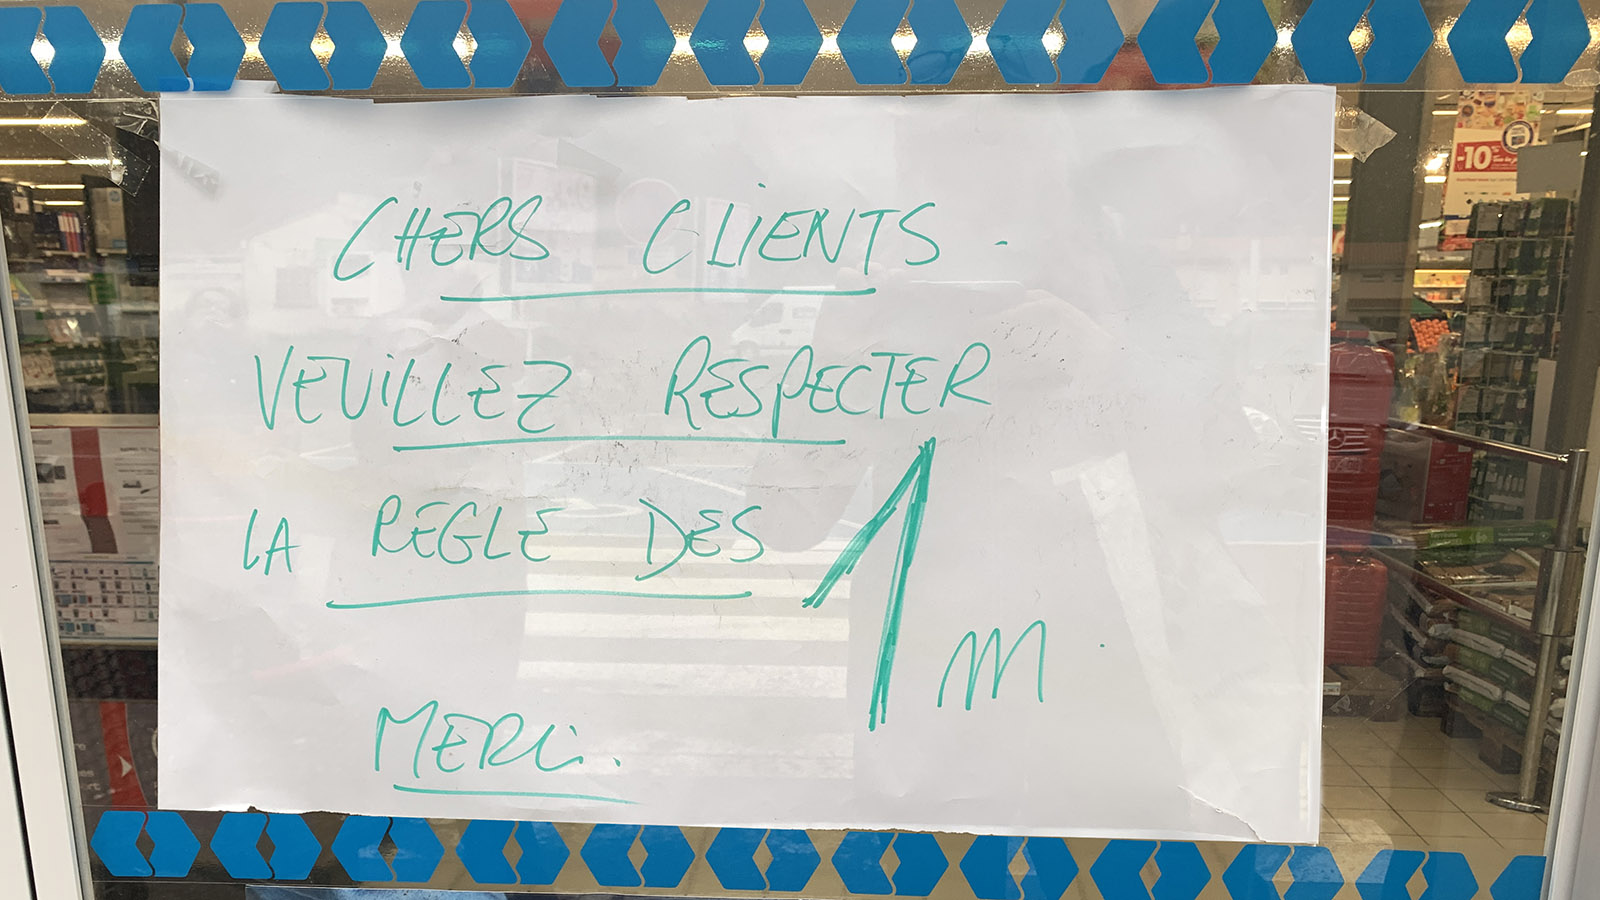 CHERS CLIENTS.
VEUILLEZ RESPECTER
LA REGLE DES 1 m.
MERCi.
-10